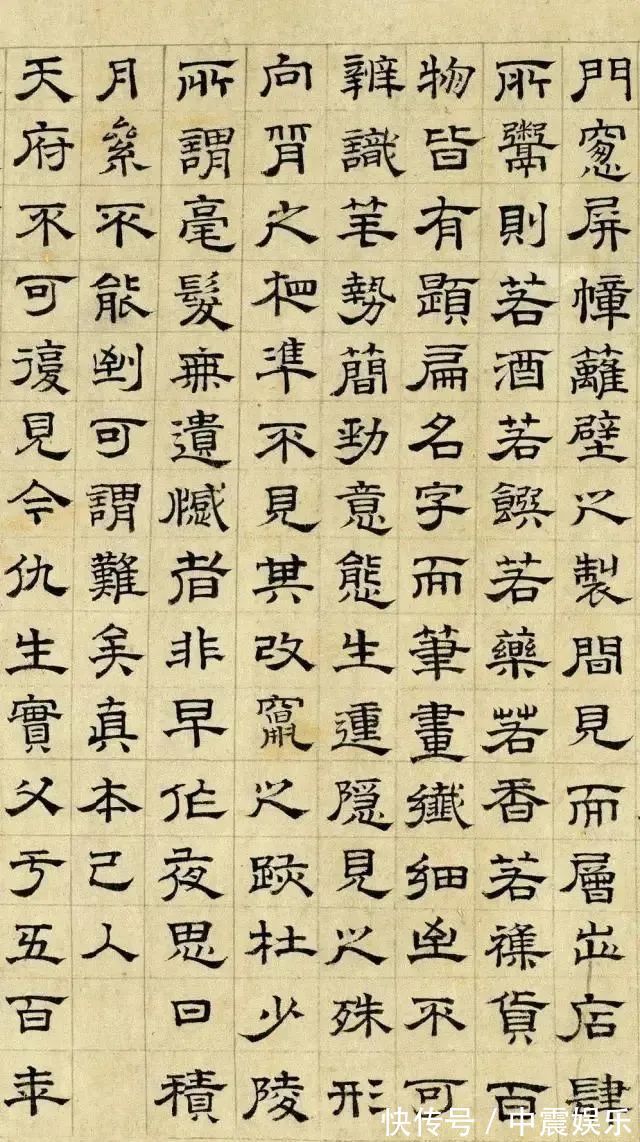 門窻屏幛籬壁之製間見而層出店肆
所鬻則若酒若饌若藥若香若襍貨百
物皆有題扁名字而筆畫纖細至不可
辨識笔勢簡勁意態生運隱見之殊形
向背之相準不見其改竄之跡杜少陵
所謂毫髮無遺憾者非早作夜思日積
月絫不能到可謂難矣真本已入
天府不可復見今仇生實父于五百年
快传号/中震娱乐